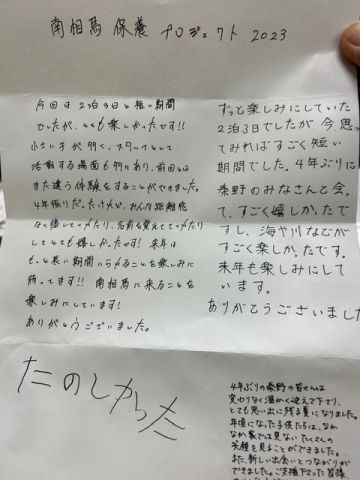 南相馬 保養 プロジェクト 2023
今回は2泊3日と短い期間
でしたが、とても楽しかったです!!
小さい子が多く、スタッフとして
活動する場面も多々あり、前回とは
また違う体験をすることができました。
4年振りだったけど、みんな距離感
なく接してくれたり、名前を覚えててくれたり
してとても嬉しかったです! 来年は
もっと長い期間いられることを楽しみに
待ってます!! 南相馬に来ることを
楽しみにしています!
ありがとうございました。
ずっと楽しみにしていた
2泊3日でしたが 今思っ
てみればすごく短い
期間でした。4年ぶりに
秦野のみなさんと会っ
て、すごく嬉しかったで
すし、海や川などが
すごく楽しかったです。
来年も楽しみにして
います。
ありがとうございました
たのしかった
4年ぶりの秦野の皆さんは
変わりなく温かく迎えて下さり、
とても思い出に残る夏になりました。
年頃になった子供たちは、なか
なか家では見ない たくさんの
笑顔を見ることができました。
また、新しい出会いとつながりが
できました。ご支援下さった皆様、